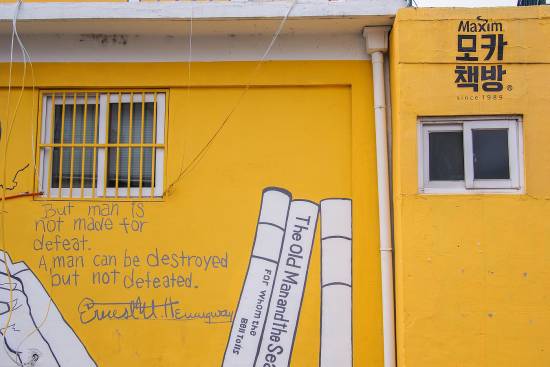 Maxim
모카
책방®
since 1989
But man is
not made for
defeat.
A man can be destroyed
but not defeated.
Ernest Hemingway
The Old Man and the Sea
For whom the
Bell Tolls